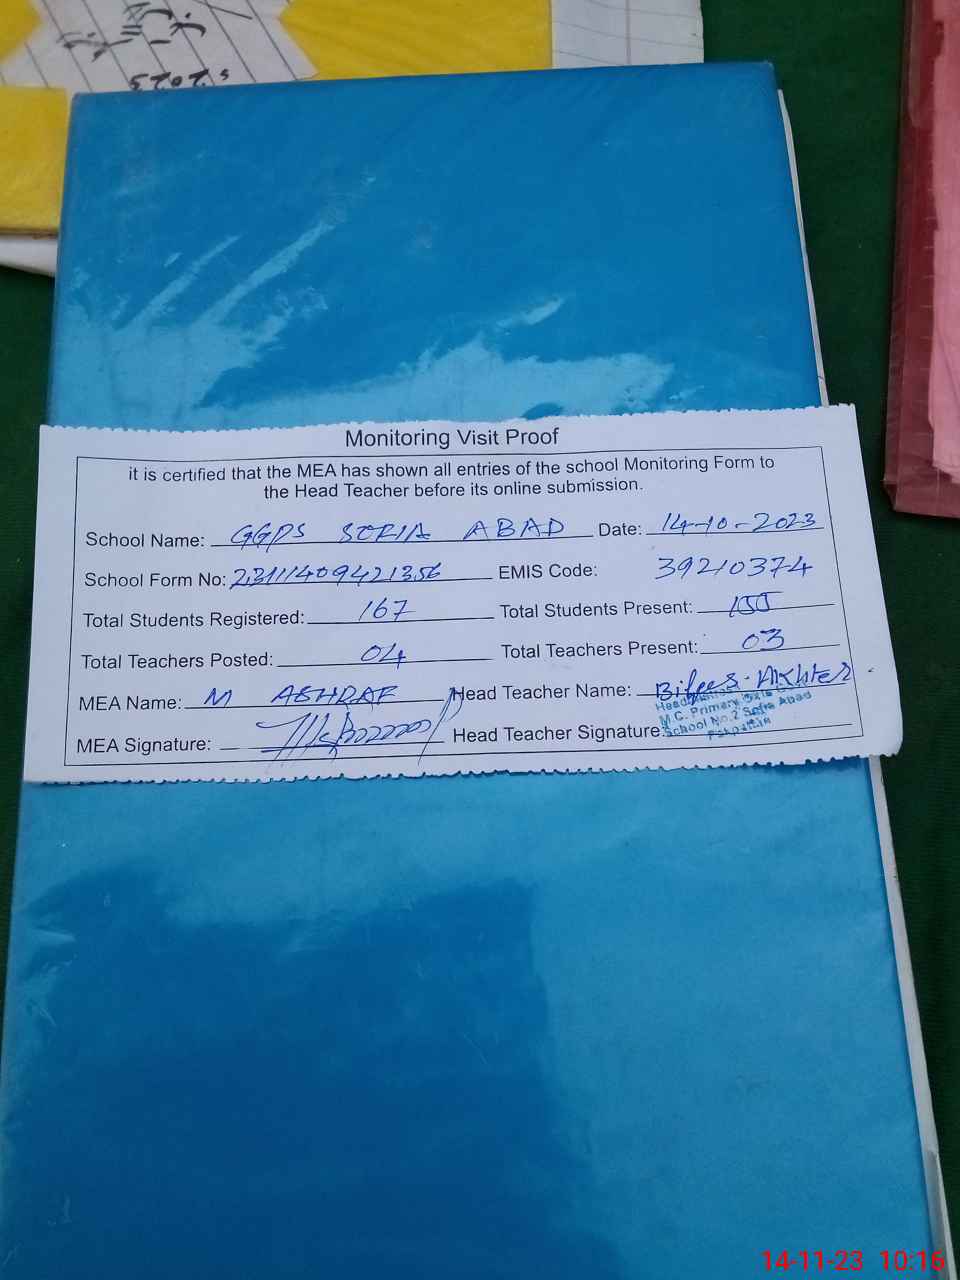 Monitoring Visit Proof
it is certified that the MEA has shown all entries of the school Monitoring Form to
the Head Teacher before its online submission.
School Name: GGPS SOFIA ABAD Date: 14-10-2023
School Form No: 23111409421356 EMIS Code: 39210374
Total Students Registered: 167 Total Students Present: 155
Total Teachers Posted: 04 Total Teachers Present: 03
MEA Name: M ASHRAF Head Teacher Name: Akhter
MEA Signature: Head Teacher Signature:
M.C. Primary
School No.2 Sofia Abad
Pakpattan
14-11-23 10:16